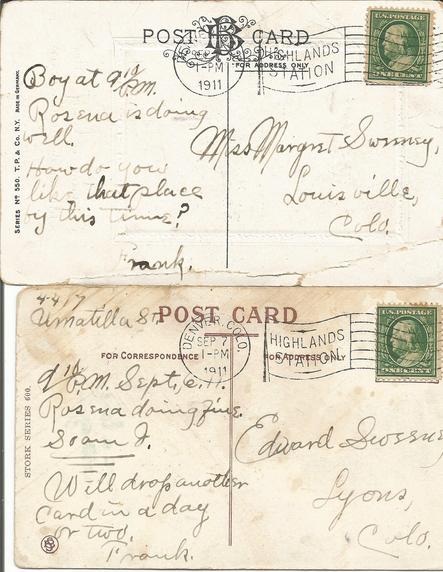 POST CARD
FOR ADDRESS ONLY
1-PM
1911
HIGHLANDS
STATION
U.S. POSTAGE
ONE CENT
SERIES No 550. T. P. & Co. N.Y. MADE IN GERMANY.
Boy at 9 P.M.
Rosena is doing
well.
How do you
like that place
by this time?
Frank.
Miss Margret Sweeney,
Louisville,
Colo.
4417
Umatilla St.
POST CARD
FOR CORRESPONDENCE
FOR ADDRESS ONLY
DENVER, COLO.
SEP 7
1-PM
1911
HIGHLANDS
STATION
U.S. POSTAGE
ONE CENT
STORK SERIES 600.
P.M. Sept. 6, 11.
Rosena doing fine
So am I.
Will drop another
card in a day
or two.
Frank.
Edward
Lyons,
Colo.